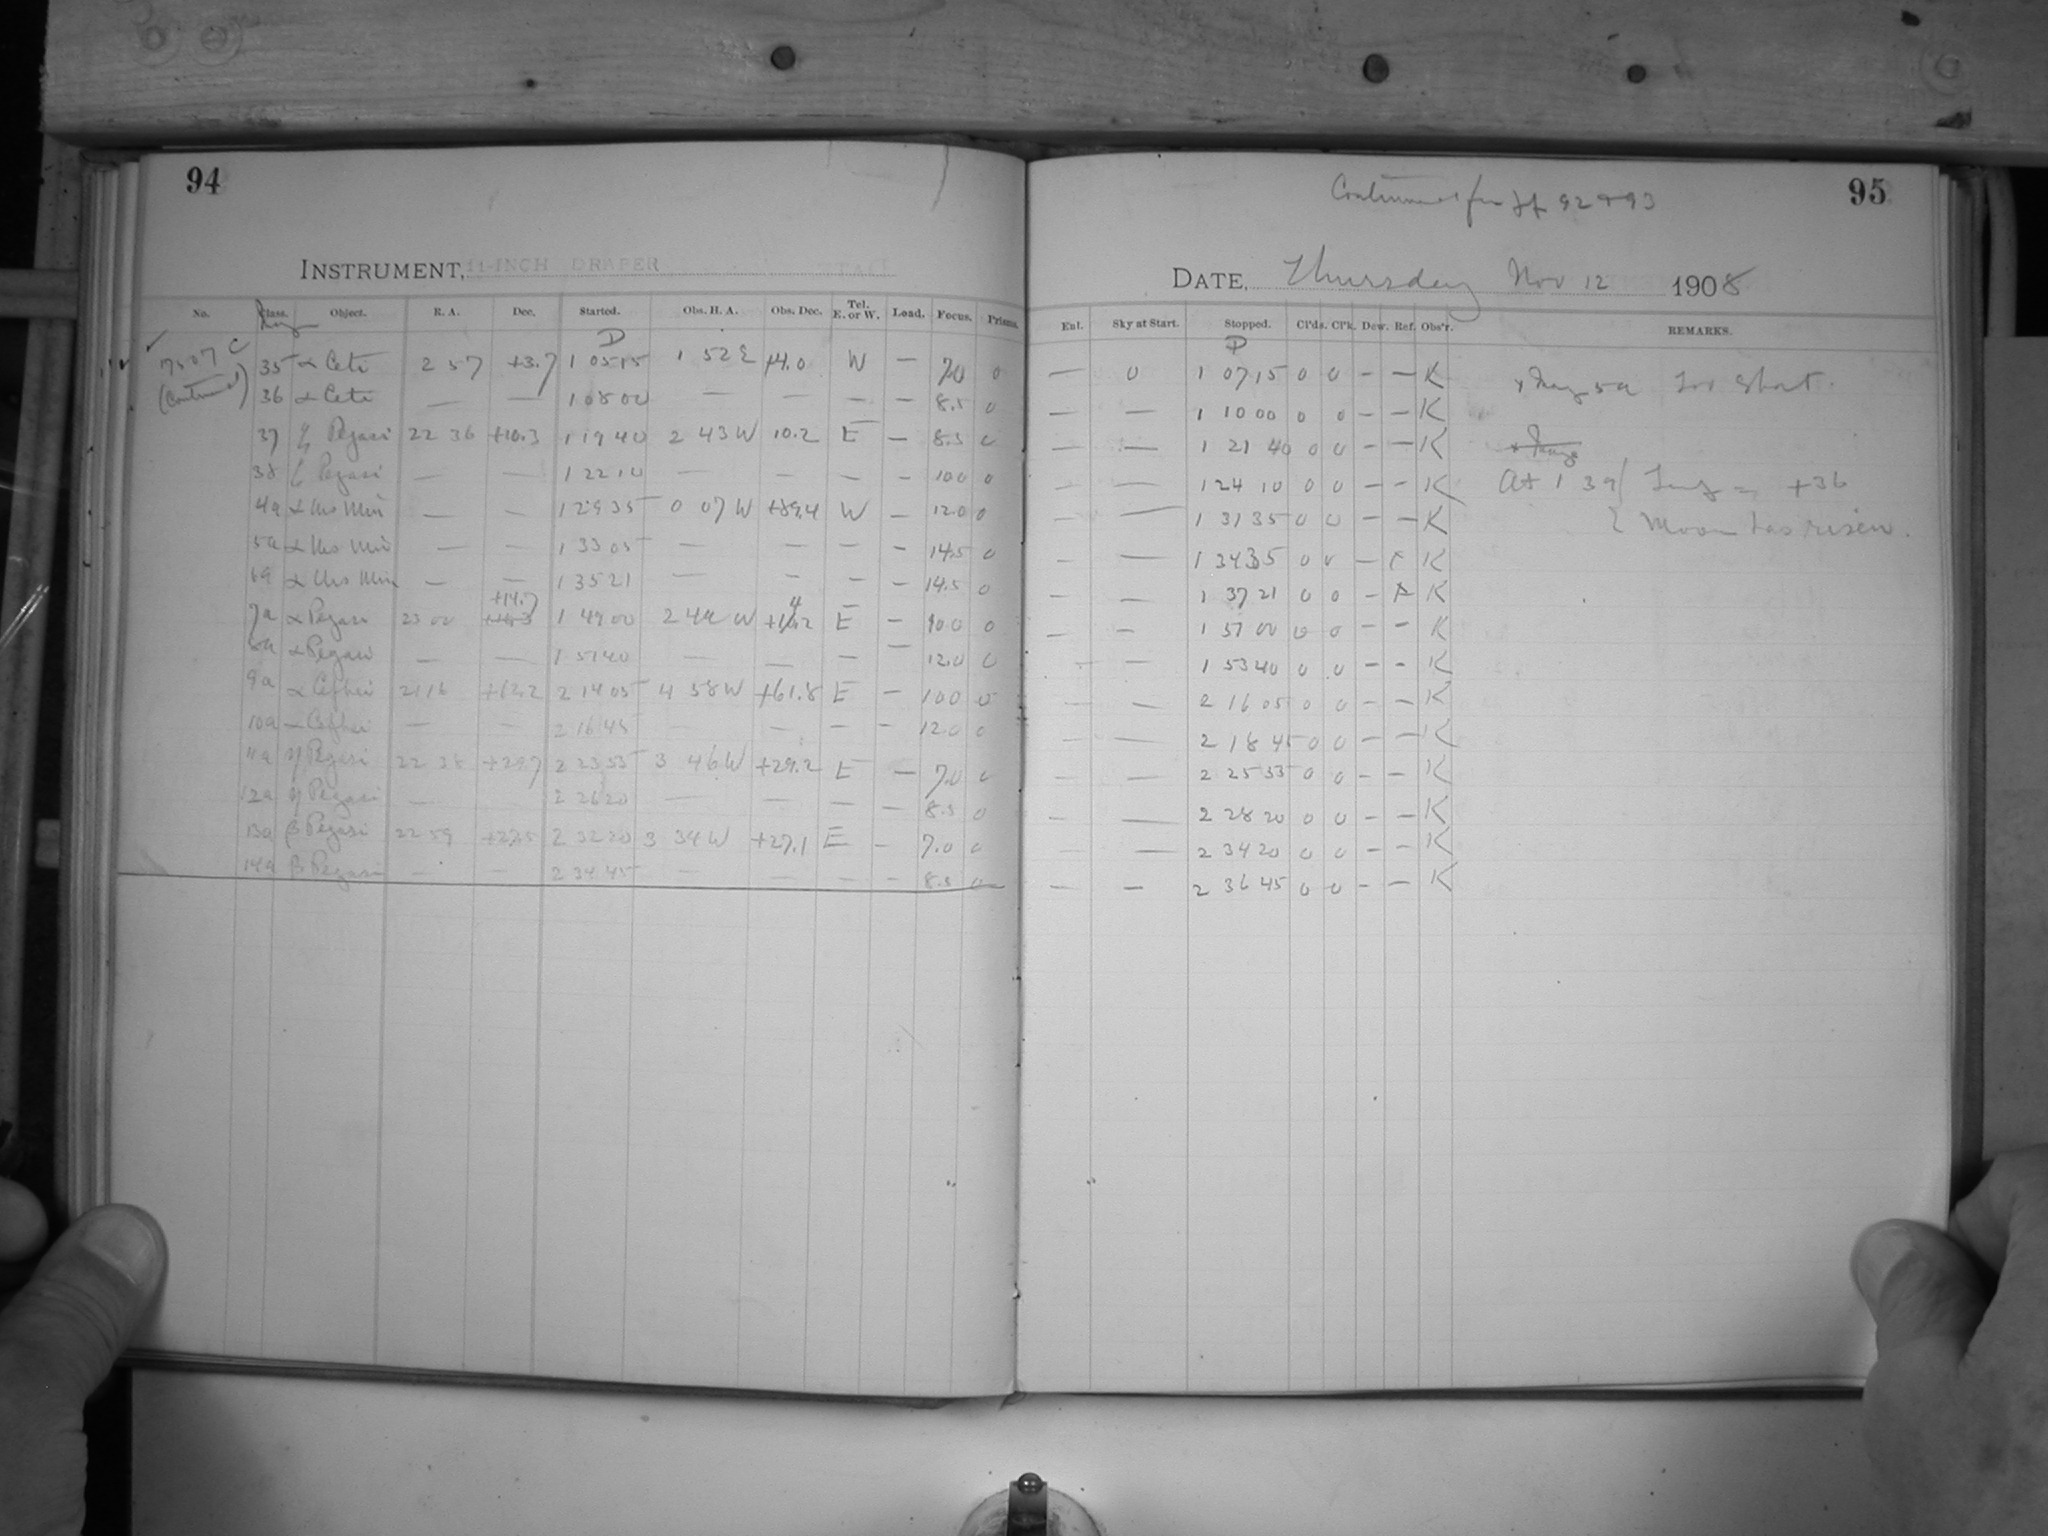 94
INSTRUMENT, 11-INCH DRAPER
No. Class. Object. R. A. Dec. Started. Obs. H. A. Obs. Dec. Tel. E. or W. Load. Focus. Prisms.
D
C 35 α Ceti 2 57 +3.7 1 05 15 1 52 E +4.0 W — 7.0 0
(Continued) 36 α Ceti — — 1 08 00 — — — — 8.5 0
37 ζ Pegasi 22 36 +10.3 1 19 40 2 43 W 10.2 E — 8.5 0
38 ζ Pegasi — — 1 22 10 — — — — 10.0 0
4a α Urs Min — — 1 29 35 0 07 W +89.4 W — 12.0 0
5a α Urs Min — — 1 33 05 — — — — 14.5 0
6a α Urs Min — — 1 35 21 — — — — 14.5 0
+14.7
7a α Pegasi 23 00 1 49 00 2 49 W E — 10.0 0
8a α Pegasi — — 1 51 40 — — — — 12.0 0
9a α Cephei 21 16 +62.2 2 14 05 4 58 W +61.8 E — 10.0 0
10a α Cephei — — 2 16 45 — — — — 12.0 0
11a η Pegasi 22 38 +29.7 2 23 35 3 46 W +29.2 E — 7.0 0
12a η Pegasi — — 2 26 20 — — — — 8.5 0
13a β Pegasi 22 59 +27.5 2 32 20 3 34 W +27.1 E — 7.0 0
14a β Pegasi — — 2 34 45 — — — — 8.5 0
95
Continued from pp 92 + 93
DATE, Thursday Nov 12 1908
Ent. Sky at Start. Stopped. Cl'ds. Cl'k. Dew. Ref. Obs'r. REMARKS.
P
— 0 1 07 15 0 0 — — K 5a too short.
— — 1 10 00 0 0 — — K
— — 1 21 40 0 0 — — K
— — 1 24 10 0 0 — — K At 1 39 +36
— — 1 31 35 0 0 — — K Moon has risen.
— — 1 34 35 0 0 — K
— — 1 37 21 0 0 — K
— — 1 51 00 0 0 — — K
— — 1 53 40 0 0 — — K
— — 2 16 05 0 0 — — K
— — 2 18 45 0 0 — — K
— — 2 25 35 0 0 — — K
— — 2 28 20 0 0 — — K
— — 2 34 20 0 0 — — K
— — 2 36 45 0 0 — — K